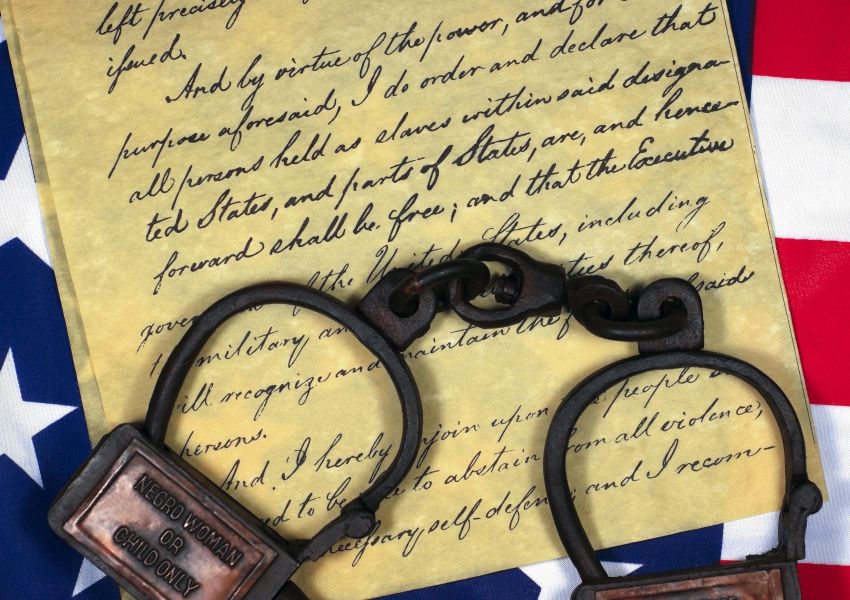 left precisely
iſsued.
And by virtue of the power, and for
purpose aforesaid, I do order and declare that
all persons held as slaves within said designa-
ted States, and parts of States, are, and hence-
forward shall be free; and that the Executive
of the United States, including
military thereof,
recognize and maintain the said
persons.
And I hereby enjoin upon people
to be to abstain from all violence,
neceſsary self-defence; and I recom-
NEGRO WOMAN
OR
CHILD ONLY